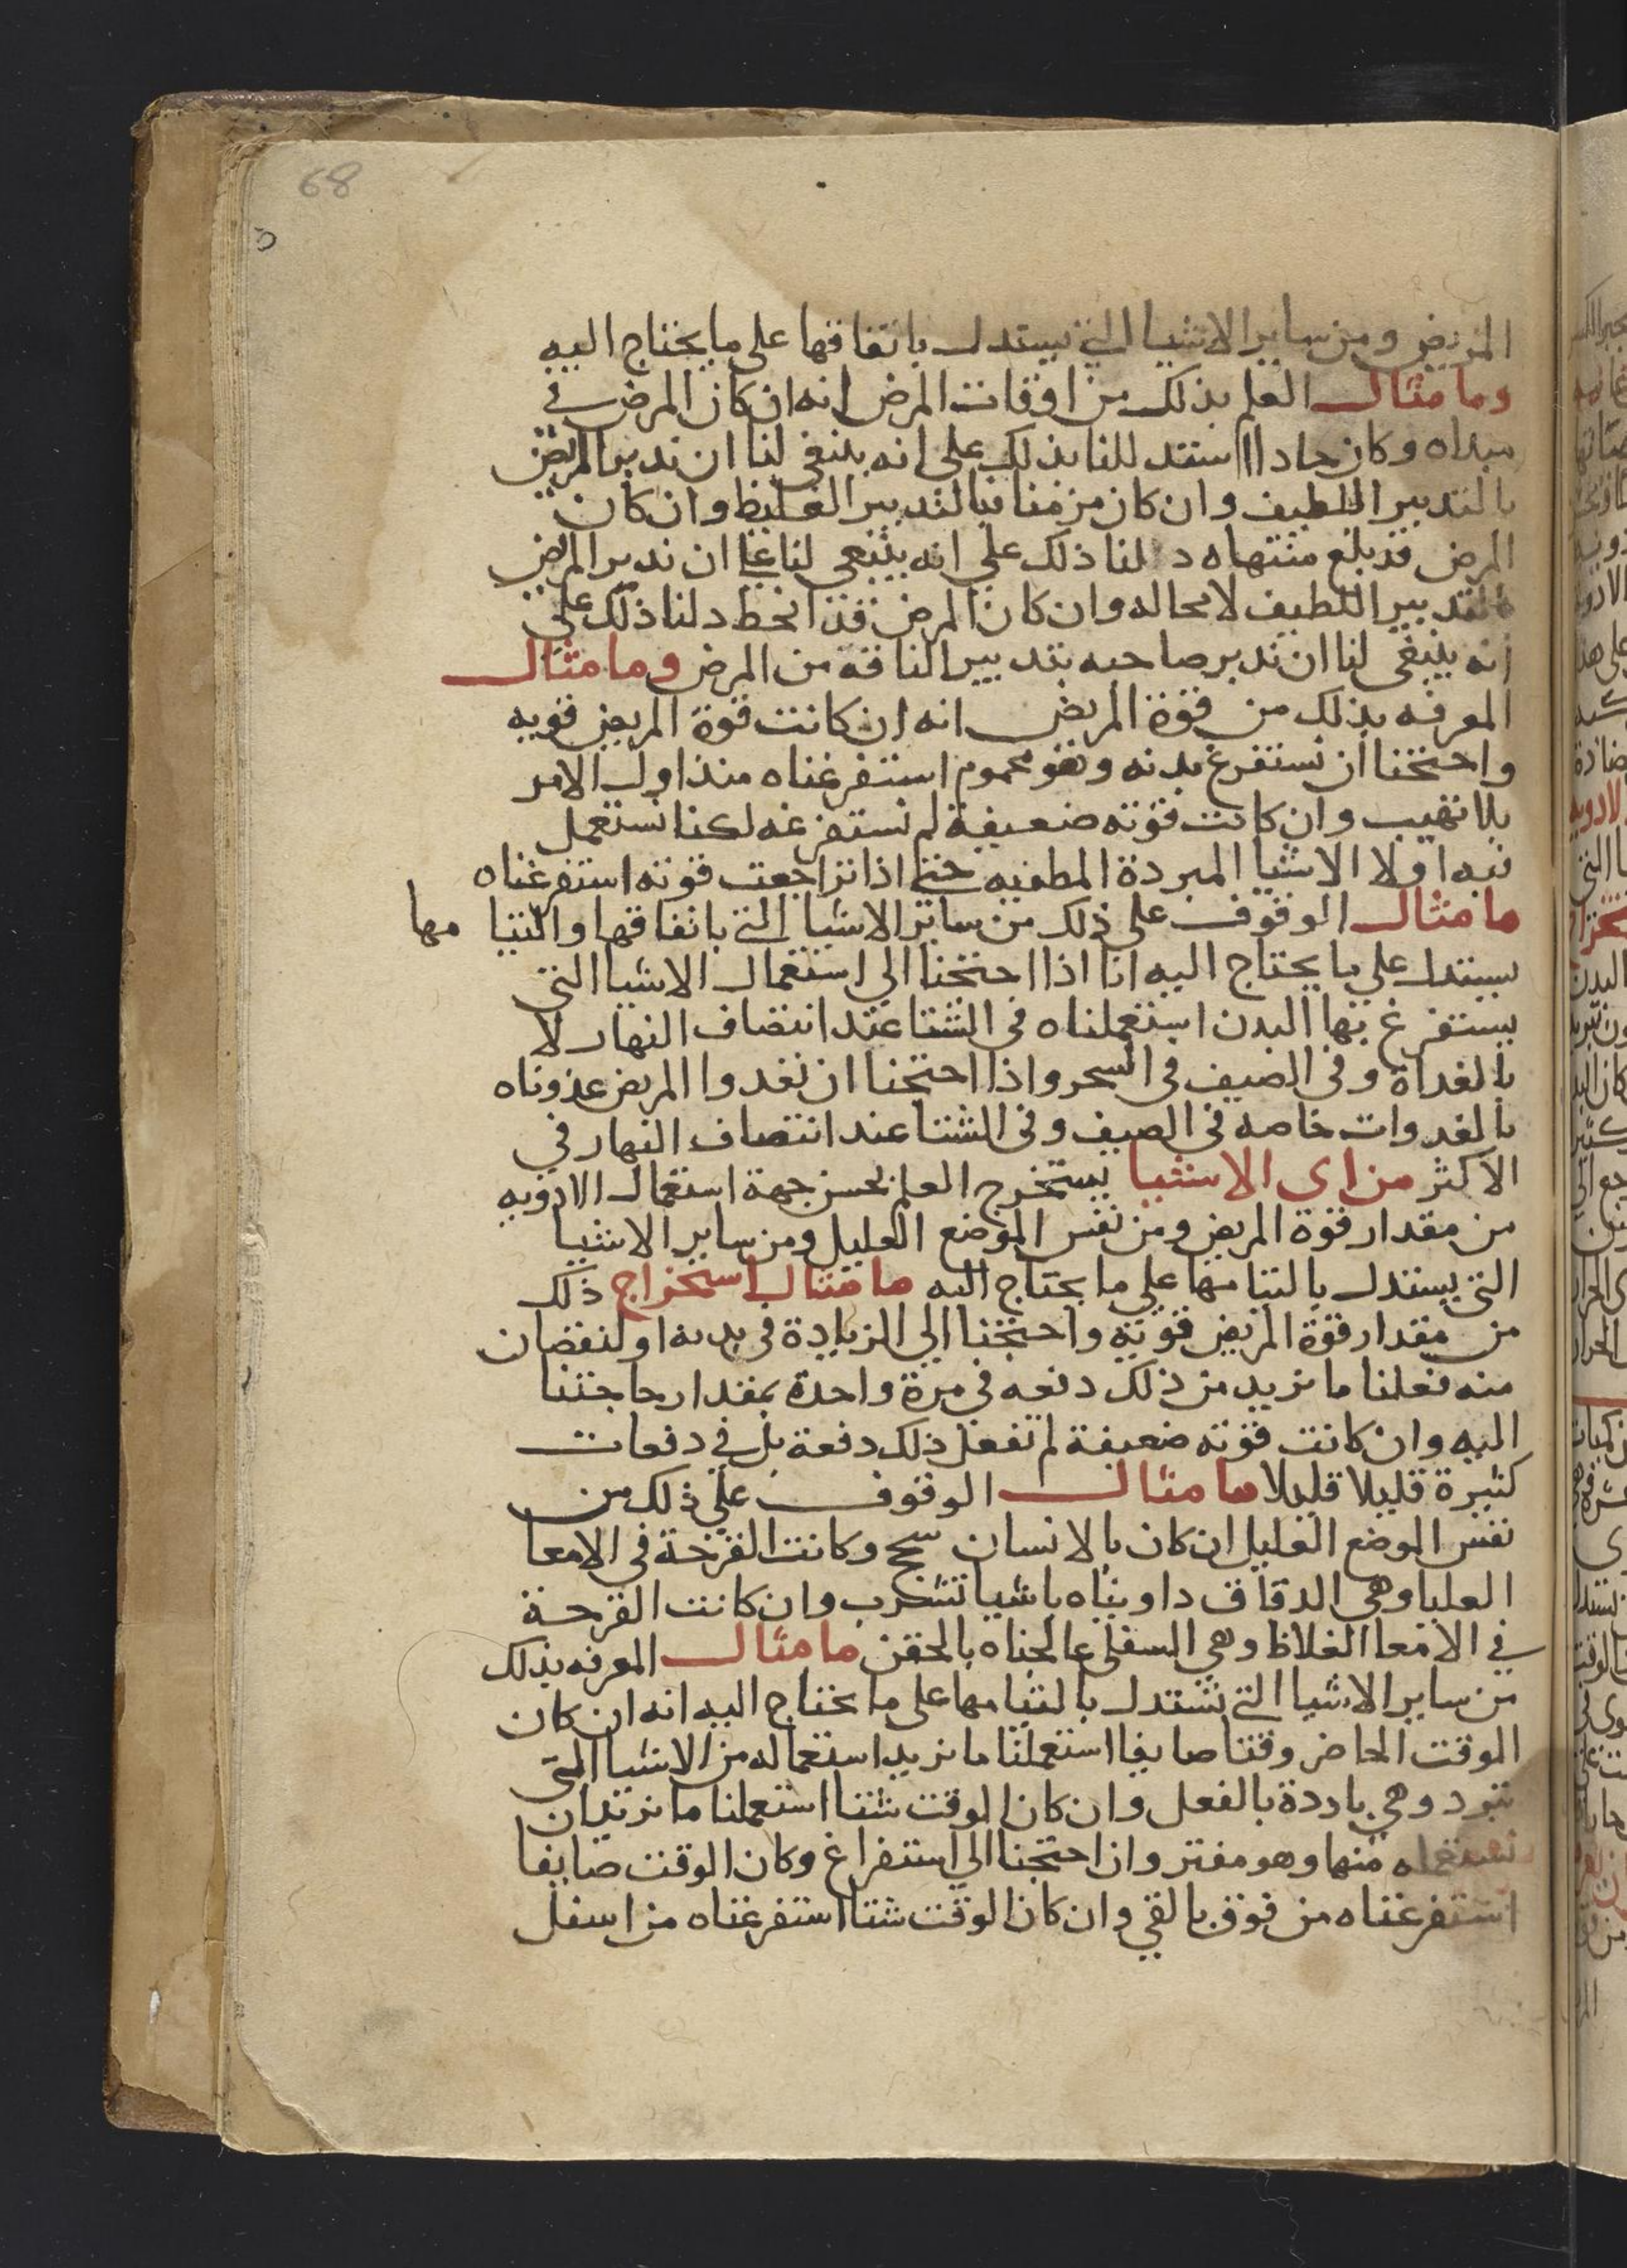 68
المريض ومن ساير الاشيا التي يستدل باتفاقها على ما يحتاج اليه
وما مثال العلم بذلك من اوقات المرض انه ان كان المرض في
مبداه وكان حادا استدللنا بذلك على انه ينبغي لنا ان ندبر المريض
بالتدبير اللطيف وان كان مزمنا فبالتدبير الغليظ وان كان
المرض قد بلغ منتهاه دلنا ذلك على انه ينبغي لنا ان ندبر المريض
بالتدبير اللطيف لا محاله وان كان المرض قد انحط دلنا ذلك على
انه ينبغي لنا ان ندبر صاحبه بتدبير الناقه من المرض وما مثال
المعرفه بذلك من قوة المريض انه ان كانت قوة المريض قويه
واحتجنا ان نستفرغ بدنه وهو محموم استفرغناه منذ اول الامر
بلا تهيب وان كانت قوته ضعيفة لم نستفرغه لكنا نستعمل
فيه اولا الاشيا المبردة المطفيه حتى اذا تراجعت قوته استفرغناه
ما مثال الوقوف على ذلك من ساير الاشيا التي باتفاقها والتيا مها
يستدل على ما يحتاج اليه انا اذا احتجنا الي استعمال الاشيا التي
يستفرغ بها البدن استعملناه في الشتا عند انتصاف النهار لا
بالغداة وفي الصيف في السحر واذا احتجنا ان نغدوا المريض غذوناه
بالغدوات خاصه في الصيف وفي الشتا عند انتصاف النهار في
الاكثر من اي الاشيا يستخرج العلم بحسن جهة استعمال الادويه
من مقدار قوة المريض ومن نفس الموضع العليل ومن ساير الاشيا
التي يستدل بالتيامها على ما يحتاج اليه ما مثال استخراج ذلك
من مقدار قوة المريض قوته واحتجنا الي الزيادة في بدنه او لنقصان
منه فعلنا ما نريد من ذلك دفعه في مرة واحدة بمقدار حاجتنا
اليه وان كانت قوته ضعيفة لم نفعل ذلك دفعة بل في دفعات
كثيرة قليلا قليلا ما مثال الوقوف على ذلك من
نفس الموضع العليل ان كان بالانسان سحج وكانت القرحة في الامعا
العليا وهي الدقاق داويناه باشيا تشرب وان كانت القرحة
في الامعا الغلاظ وهي السفلي عالجناه بالحقن ما مثال المعرفه بذلك
من ساير الاشيا التي نستدل بالتيامها على ما يحتاج اليه انه ان كان
الوقت الحاضر وقتا صايفا استعملنا ما نريد استعماله من الاشيا التي
تبرد وهي باردة بالفعل وان كان الوقت شتا استعملنا ما نريد ان
نستعمله منها وهو مفتر وان احتجنا الي استفراغ وكان الوقت صايفا
استفرغناه من فوق بالقي وان كان الوقت شتا استفرغناه من اسفل